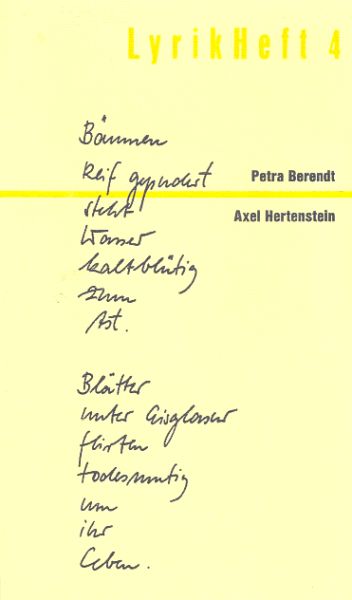 LyrikHeft 4
Bäumen
Reif gepudert
Petra Berendt
steht
Axel Hertenstein
Wasser
kaltblütig
zum
Ast.
Blätter
unter Eisglaser
flirten
todesmutig
um
ihr
Leben.